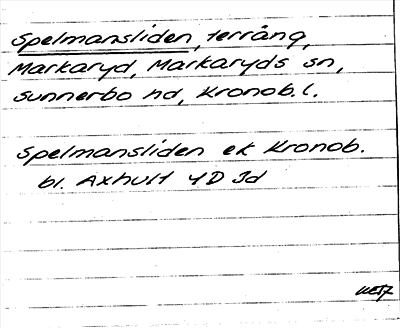 Spelmansliden, terräng,
Markaryd, Markaryds sn,
Sunnerbo hd, Kronob.l.
Spelmansliden ek Kronob.
bl. Axhult 4D Jd